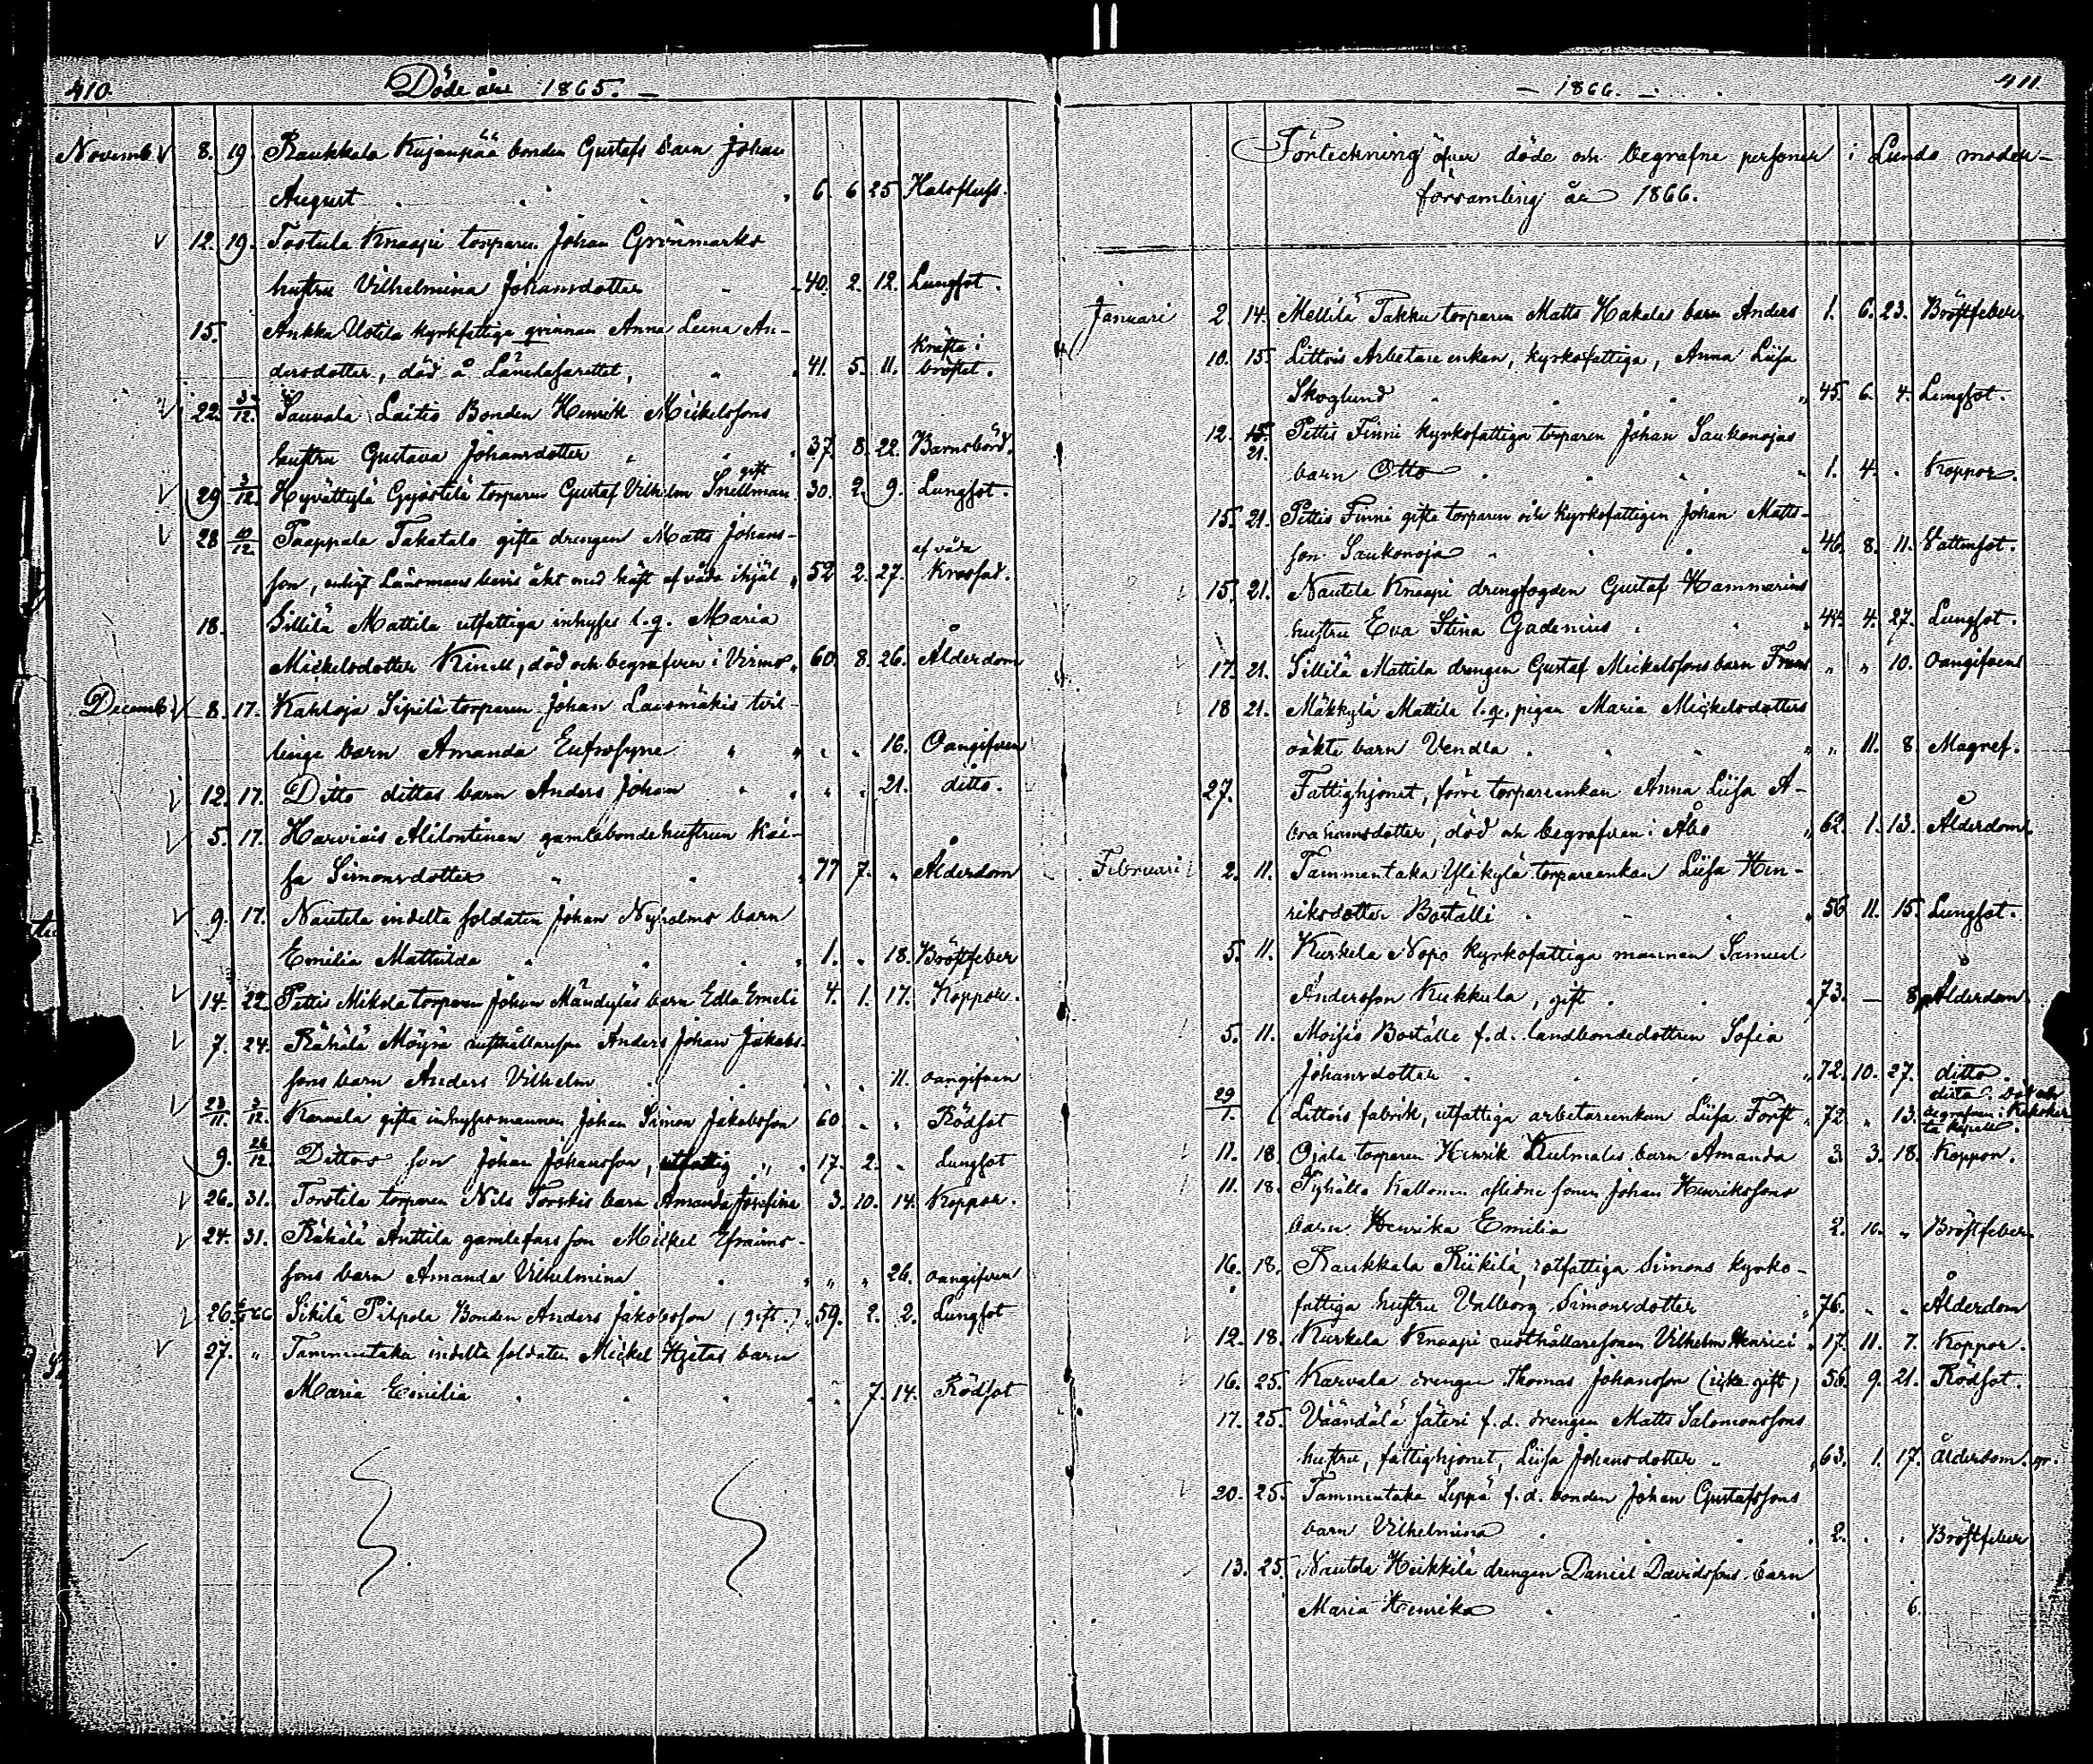 410. Döde år 1865. —
Novemb. 8. 19. Raukkala Kujanpää bonden Gustafs barn Johan
August 6. 6 25 Halsfluss.
12. 19. Tostula Knaapi torparen Johan Grönmarks
hustru Vilhelmina Johansdotter 40. 2. 12. Lungsot.
15. Ankka Uotila kyrkfattiga qvinnan Anna Leena An-
kräfta i
dersdotter, död å Länelasarettet, 41. 5. 11. bröstet.
22. 3/12. Sauvala Laitis Bonden Henrik Mickelssons
hustru Gustava Johansdotter 37. 8. 22. Barnsbörd.
29 3/12. Hyvättylä Gyöstilä torparen Gustaf Vilhelm Snellman gift 30. 2. 9. Lungsot.
28 10/12. Paappala Takatalo gifta drengen Matts Johans-
af våda
son, enligt Länsmans bevis åkt med häst af våda ihjäl 52 2. 27. krossad.
18. Sillilä Mattila utfattiga inhyses l.q. Maria
Mickelsdotter Kinell, död och begrafven i Virmo 60. 8. 26. Ålderdom
Decemb: 8. 17. Kahloja Sipilä torparen Johan Laosmäkis tvil-
linge barn Amanda Eufrosyne " " " 16. Oangifven
12. 17. Ditto dittos barn Anders Johan " " 21. ditto.
5. 17. Harviais Alilontinen gamlebondehustrun Kai-
sa Simonsdotter 77 7. " Ålderdom
9. 17. Nautela indelta soldaten Johan Nyholms barn
Emilia Mathilda 1. " 18. Bröstfeber
14. 22. Pettis Mikola torparen Johan Mändyläs barn Edla Emeli 4. 1. 17. Koppor.
7. 24. Rähälä Möyrä rusthållareson Anders Johan Jakobs-
sons barn Anders Vilhelm " " 11. oangifven
23/11. 3/12. Karvala gifta inhysesmannen Johan Simon Jakobsson 60. " " Rödsot
9. 26/12. Dittos son Johan Johansson, utfattig " 17. 2. " Lungsot
26. 31. Torstila torparen Nils Torskis barn Amanda Josefina 3. 10. 14. Koppor.
24. 31. Rähälä Anttila gamlefars son Mickel Efraims-
sons barn Amanda Vilhelmina " " 26. oangifven
26. 6/1 66 Sikilä Pilpola Bonden Anders Jakobsson (gift.) 59. 2. 2. Lungsot
27. " Tammentaka indelta soldaten Mickel Hjetas barn
Maria Emilia " 7. 14. Rödsot
— 1866. — 411.
Förteckning öfver döde och begrafne personer i Lundo moder-
församling år 1866.
Januari 2. 14. Mellilä Takku torparen Matts Hakalas barn Anders 1. 6. 23. Bröstfeber
10. 15. Littois Arbetare enkan, kyrkofattiga, Anna Liisa
Skoglund 45. 6. 4. Lungsot.
12. 15. 21. Pettis Finni kyrkofattiga torparen Johan Saukonojas
barn Otto 1. 4. " Koppor.
15. 21. Pettis Finni gifte torparen och kyrkofattigen Johan Matts-
son Saukonoja 46. 8. 11. Vattensot.
15. 21. Nautela Knaapi drengfogden Gustaf Hammarins
hustru Eva Stina Gadenius 44. 4. 27. Lungsot.
17. 21. Sillilä Mattila drengen Gustaf Mickelssons barn Frans " " 10. oangifvens
18 21. Mäkkylä Mattila l.q. pigan Maria Mickelsdotters
oäkta barn Vendla " 11. 8 Magref.
27. Fattighjonet, förre torpareenkan Anna Liisa A-
brahamsdotter, död och begrafven i Åbo 62. 1. 13. Ålderdom
Februari 2. 11. Tammentaka Ylikylä torpareenkan Liisa Hen-
riksdotter Boställi 56 11. 15. Lungsot.
5. 11. Kurkela Nopo kyrkofattiga mannen Samuel
Andersson Kukkula, gift 73. — 8 Ålderdom
5. 11. Moisio Boställe f.d. landbondedottren Sofia
Johansdotter 72. 10. 27. ditto.
29/1. Littois fabrik, utfattiga arbetareenkan Liisa Forst 72. " 13. ditto. Död och begrafven i Kakskerta kapell.
11. 18. Ojala torparen Henrik Kulmalas barn Amanda 3. 3. 18. Koppor.
11. 18. Pyhältö Kallonen aflidne sonen Johan Henrikssons
barn Henrika Emilia 2. 10. " Bröstfeber
16. 18. Raukkala Riikilä, rotfattiga Simons kyrko-
fattiga hustru Valborg Simonsdotter 76. " " Ålderdom
12. 18. Kurkela Knaapi rusthållaresonen Vilhelm Henrici 17. 11. 7. Koppor.
16. 25. Karvala drengen Thomas Johansson (icke gift) 56. 9. 21. Rödsot.
17. 25. Väändälä säteri f.d. drengen Matts Salomonssons
hustru, fattighjonet, Liisa Johansdotter 63. 1. 17. ålderdom.
20. 25. Tammentaka Seppä f.d. bonden Johan Gustafssons
barn Vilhelmina 2. " " Bröstfeber
13. 25. Nautela Heikkilä drengen Daniel Davidssons barn
Maria Henrika 6.